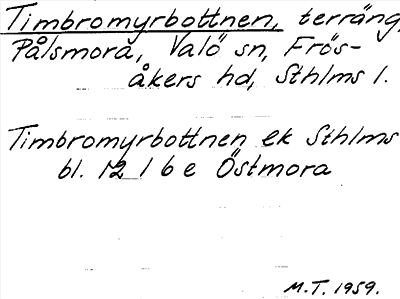 Timbromyrbottnen, terräng,
Pålsmora, Valö sn, Frös-
åkers hd, Sthlms l.
Timbromyrbottnen ek Sthlms
bl. 12 I 6 e Östmora
M.T. 1959.